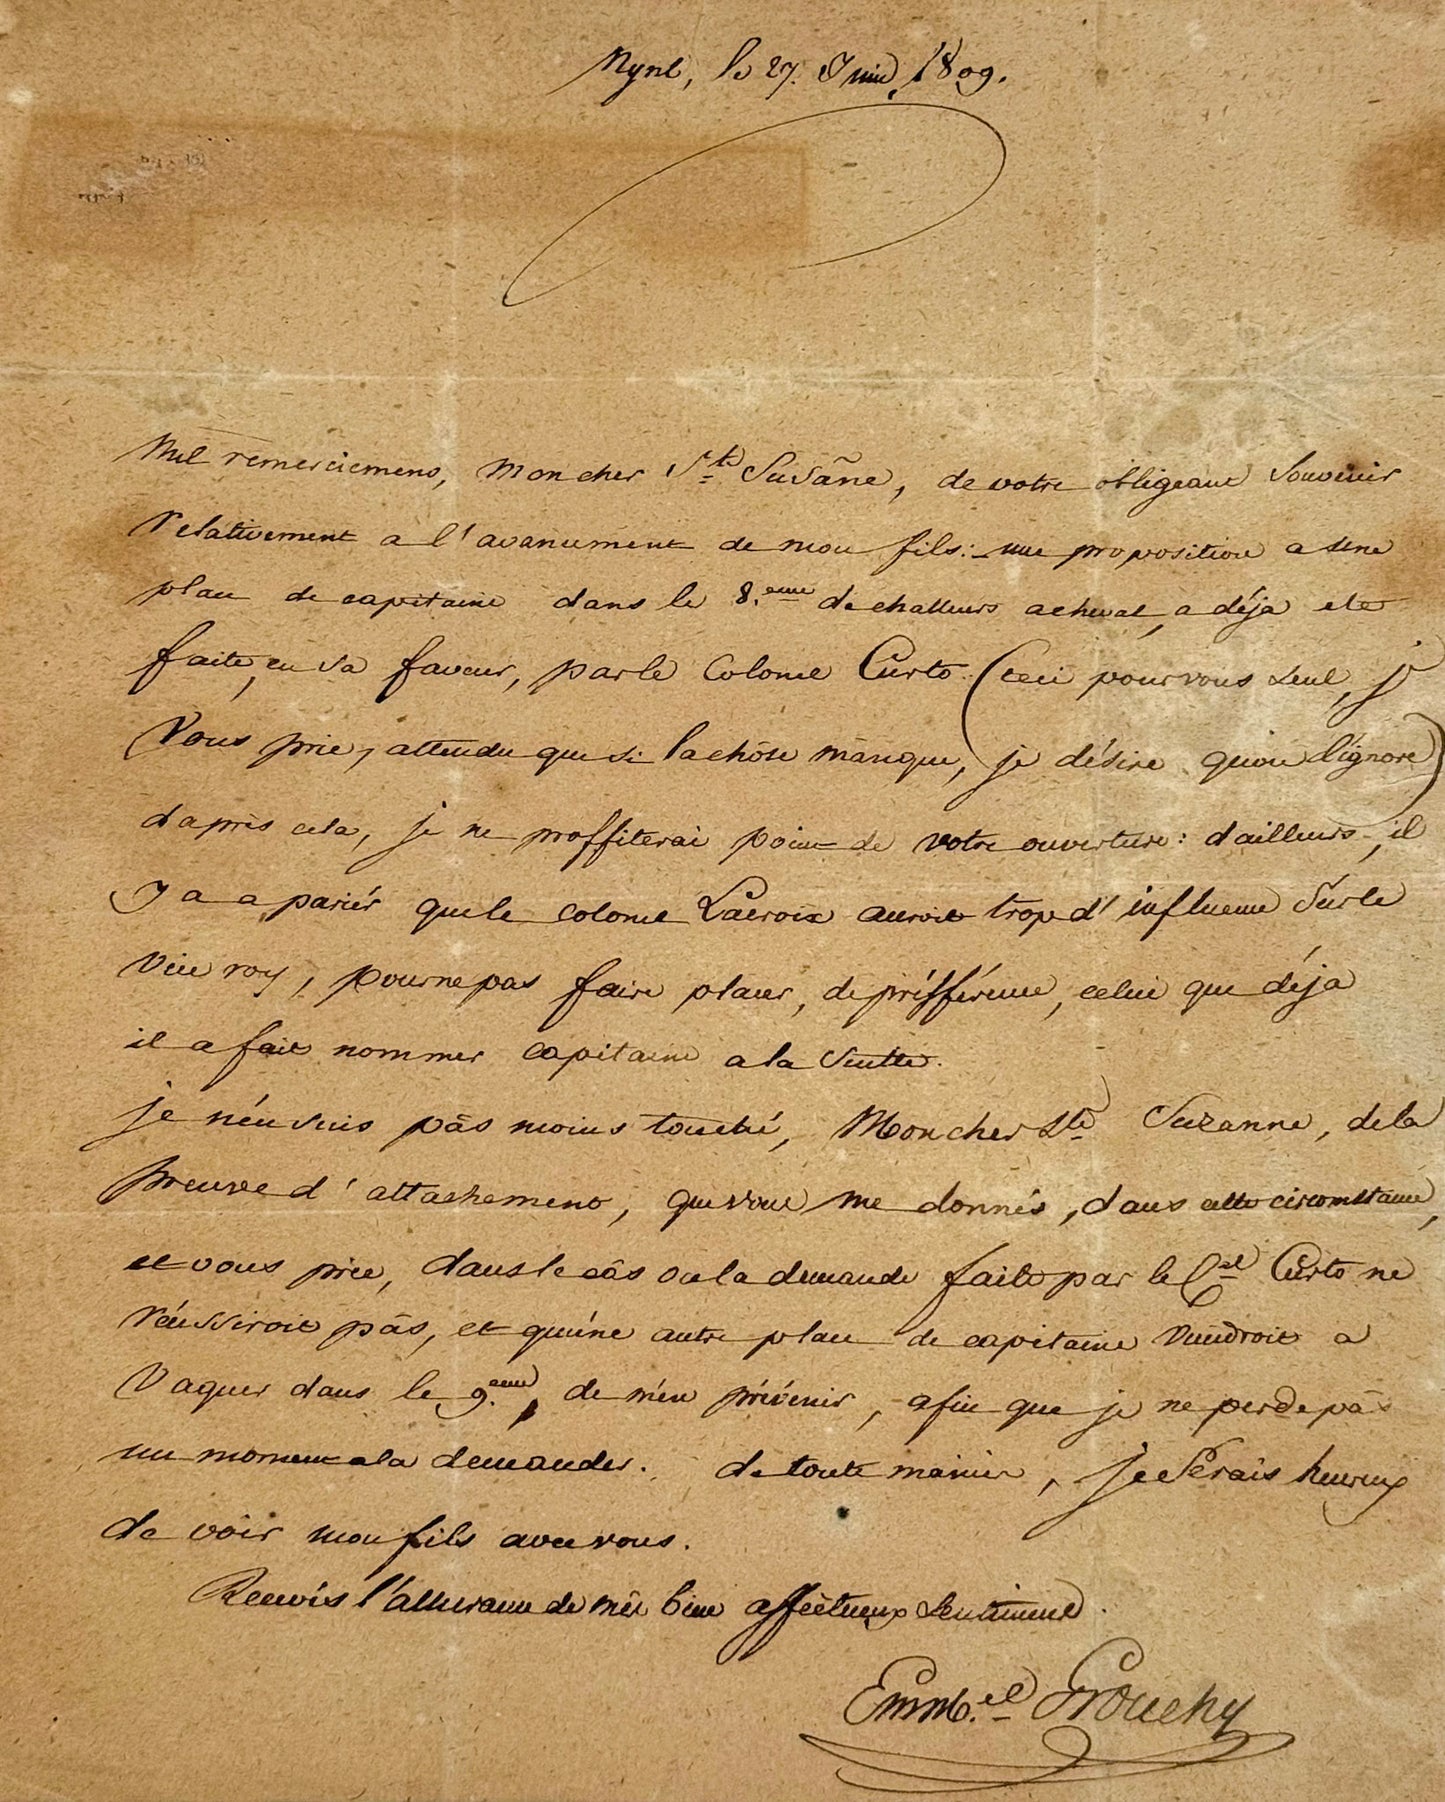 le 27. Juin, 1809.
Mil remerciemens, Mon cher Ste Susâne, de votre obligeant Souvenir
relativement a l'avancement de mon fils: une proposition a une
place de capitaine dans le 8.eme de chasseurs acheval, a déja eté
faite, en sa faveur, par le Colonel Curto (ceci pour vous seul, je
Vous prie, attendu que si la chôse mânque, je désire qu'on l'ignore)
daprès cela, je ne proffiterai point de votre ouverture: dailleurs, il
y a a pariér que le colonel Lacroix auroit trop d'influence Sur le
Vice roy, pour ne pas faire placer, de préfférence, celui que déja
il a fait nommer capitaine a la Suitte.
je n'en suis pâs moins touché, Mon cher Ste Suzanne, de la
preuve d'attachement, que vous me donnés, dans cette circonstance,
et vous prie, dans le câs ou la demande faite par le Cel Curto ne
réussiroit pâs, et qu'une autre place de capitaine viendroit a
Vaquer dans le 9.eme, de m'en prévenir, afin que je ne perde pâs
un moment a la demander. de toute manier, je Serais heureux
de voir mon fils avec vous.
Recevés l'assurance de mes bien affectueux sentimens.
Emm.el Grouchy